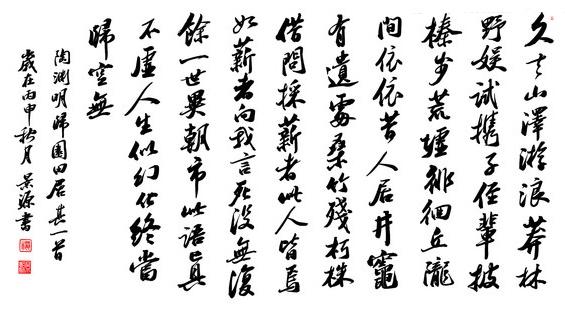 久去山澤游浪莽林
野娱試携子侄輩披
榛步荒墟徘徊丘隴
間依依昔人居井竈
有遺處桑竹殘朽株
借問採薪者此人皆焉
如薪者向我言死没無復
餘一世異朝市此語真
不虛人生似幻化終當
歸空無
陶淵明歸園田居其一首
歲在丙申秋月景源書